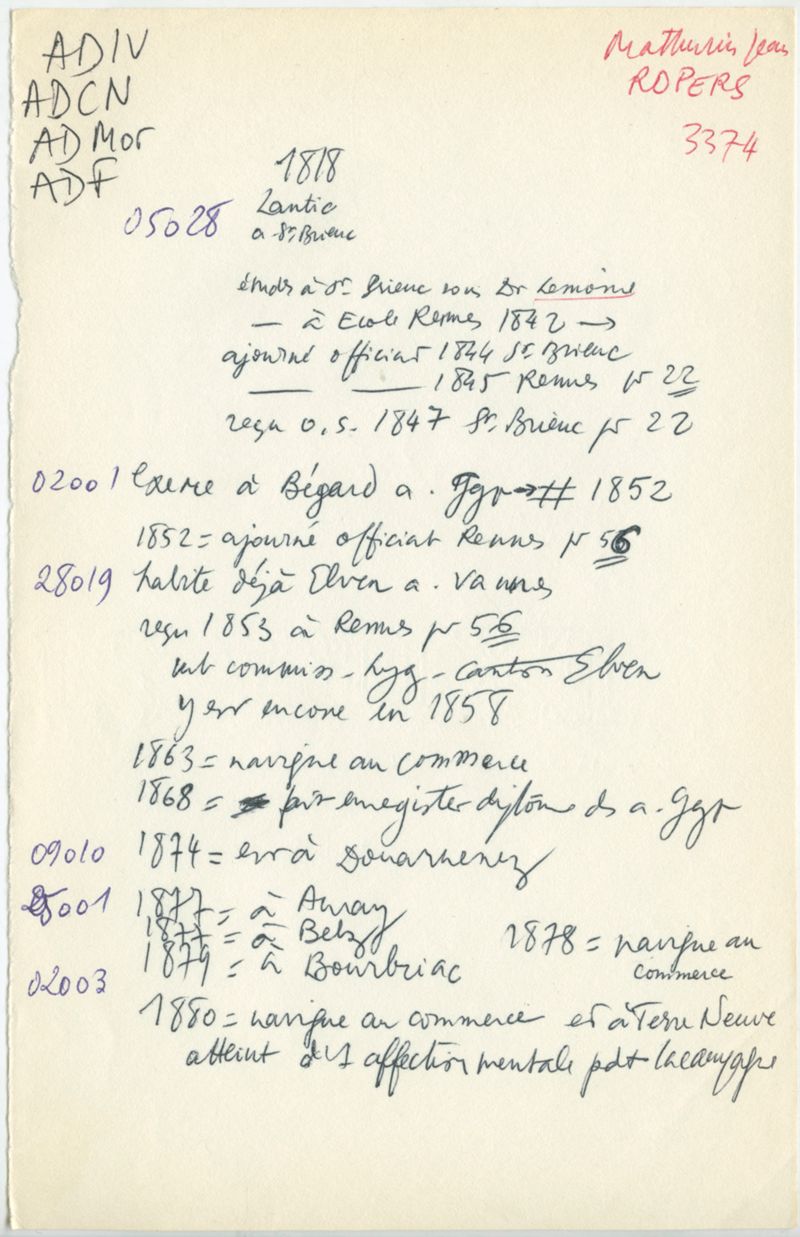 ADIV
ADCN
AD Mor
ADF
Mathurin Jean
ROPERS
3374
1818
Lantic
a St Brieuc
05028
études à St Brieuc sous Dr Lemoine
— à Ecole Rennes 1842 →
ajourné officiat 1844 St Brieuc
— — 1845 Rennes pr 22
reçu o.s. 1847 St Brieuc pr 22
02001 Exerce à Bégard a. Ggp → # 1852
1852 = ajourné officiat Rennes pr 56
28019 habite déjà Elven a. Vannes
reçu 1853 à Rennes pr 56
commiss - hyg - canton Elven
y est encore en 1858
1863 = navigue au commerce
1868 = fait enregister diplôme ds a. Ggp
09010 1874 = est à Douarnenez
25001 1877 = à Auray
1877 = à Belz
1878 = navigue au
commerce
02003 1879 = à Bourbriac
1880 = navigue au commerce et à Terre Neuve
atteint d'1 affection mentale pdt la campagne